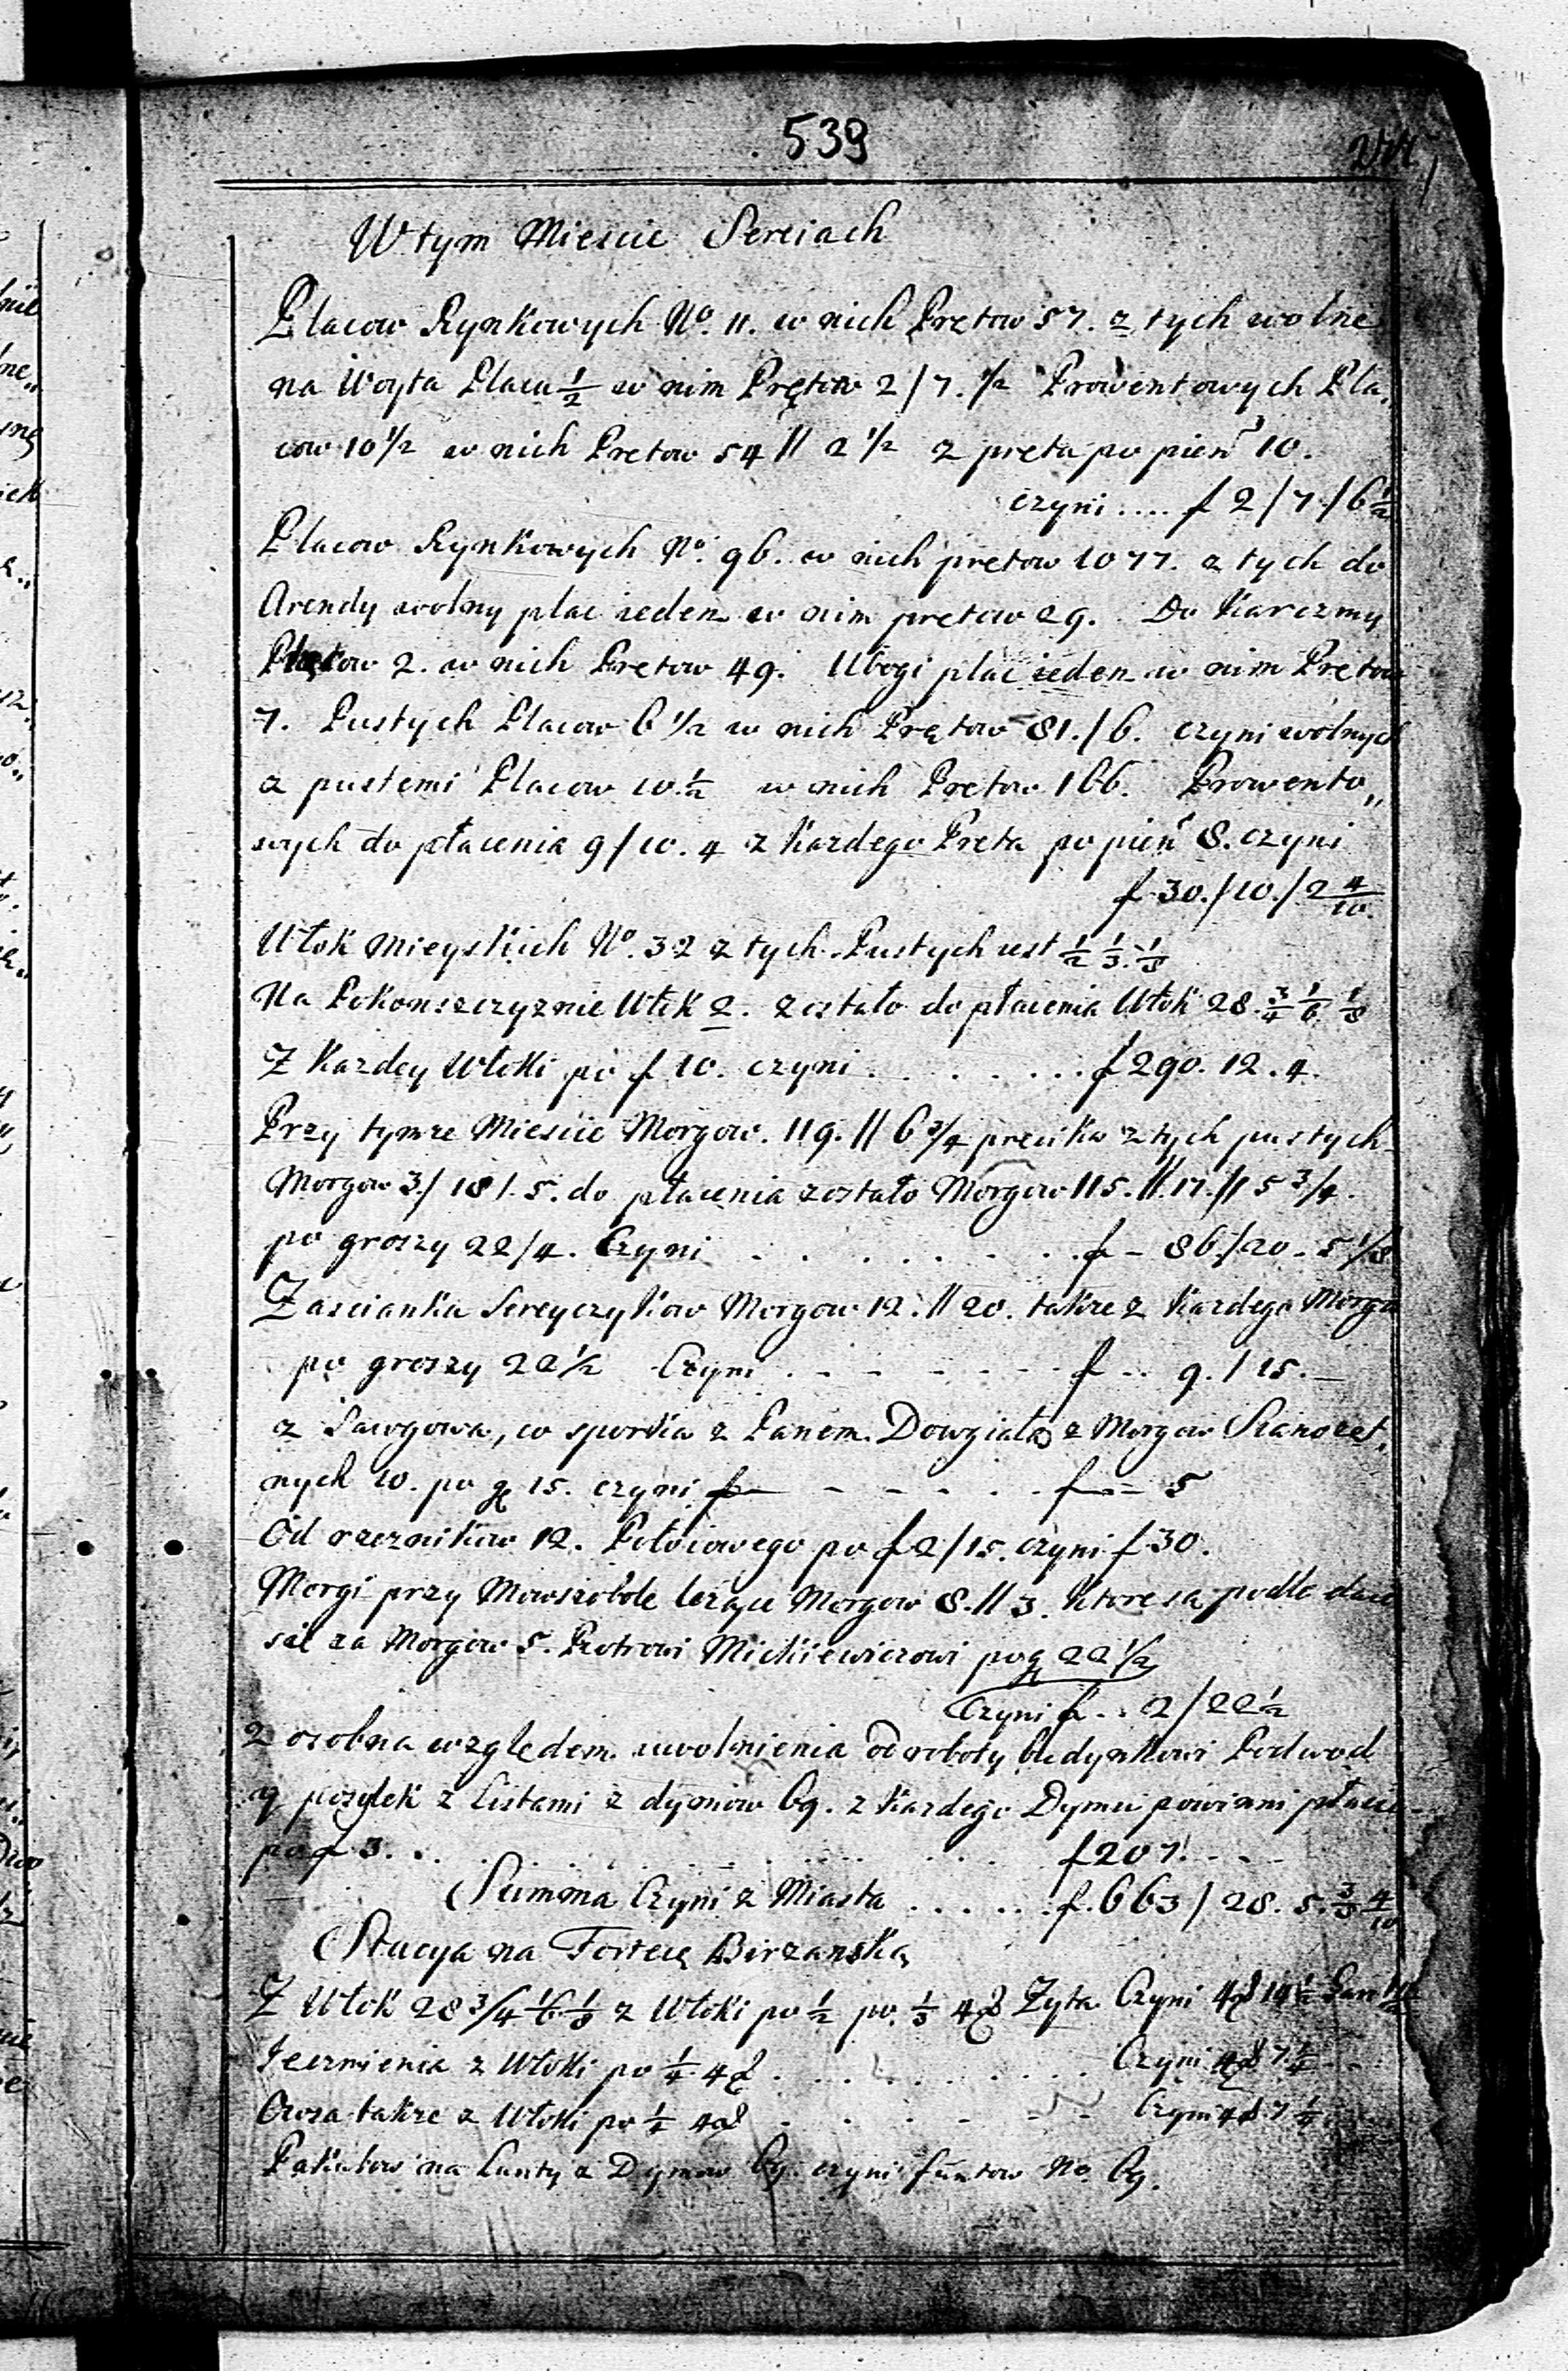 539
W tym Miescie Sereiach
Placow Rynkowych No. 11. w nich Prętow 57. z tych wolne
na Woyta Placu 1/2 w nim Prętow 2/7. 1/2 Prowentowych Pla„
cow 10 1/2 w nich Pretow 54 // 2 1/2 z preta po pien 10.
czyni .... f 2/7/6 1/2
Placow Rynkowych No. 96. w nich pretow 1077. z tych do
Arendy wolny plac ieden w nim pretow 29. Do Karczmy
Placow 2. w nich Pretow 49. Ubogi plac ieden w nim Pretow
7. Pustych Placow 6 1/2 w nich Prętow 81./6. czyni wolnych
z pustemi Placow 10. 1/2 w nich Pretow 166. Prowento„
wych do płacenia 9/10. 4 z Kazdego Preta po pien 8. czyni
f 30./10./2 4/10.
Włok Mieyskich No. 32 z tych Pustych iest 1/2 1/3. 1/8
Na Pokonszczyznie Włok 2. zostało do płacenia Włok 28. 3/4 1/6 1/8
Z Kazdey Włoki po f 10. czyni . . . . . . . f 290. 12. 4.
Przy tymze Miescie Morgow. 119. // 6 3/4 precikow z tych pustych
Morgow 3./18/. 5. do płacenia zostało Morgow 115. // 17. // 5 3/4.
po groszy 22/4. Czyni . . . . . . . f - 86./20. 5 1/8
Zascianka Sereyczykow Morgow 12. // 20. takze z Kazdego Morgu
po groszy 22 1/2 Czyni . - - - - - f .. 9./15. -
z Sawgowa, w sporka z Panem Dowgiałą z Morgow Sianozęt„
nych 10. po g 15. czyni f - - - - . . f - - 5
Od rzeznikow 12. Połoiowego po f 2/15. czyni f 30.
Morgi przy Mowszobole leżące Morgow 8. // 3. Ktore sa podło daie
sie za Morgow 5. Piotrowi Mickiewiczowi po g 22 1/2
Czyni f .. 2/22 1/2
Z osobna względem uwolnienia od roboty budynkowi Podwod
y posyłek z Listami z dymow 69. z Kazdego Dymu powinni płacic
po f 3. . . . . . . f 207. - - -
Summa Czyni z Miasta . . . . . . f. 663/28. 5. 3/8 4/10
Stacya na Fortecę Birzanską
Z Włok 28 3/4 1/6 1/8 z Włoki po 1/2 po. 1/3 Zyta Czyni 14 1/2
Ięczmienia z Włoki po 1/4 . . . . . . . . . . Czyni 7 1/4 - -
Owsa takze z Włoki po 1/4 - - - - - - Czyni 7 1/4
Pakułow na Lunty z Dymow 69. czyni funtow No 69.